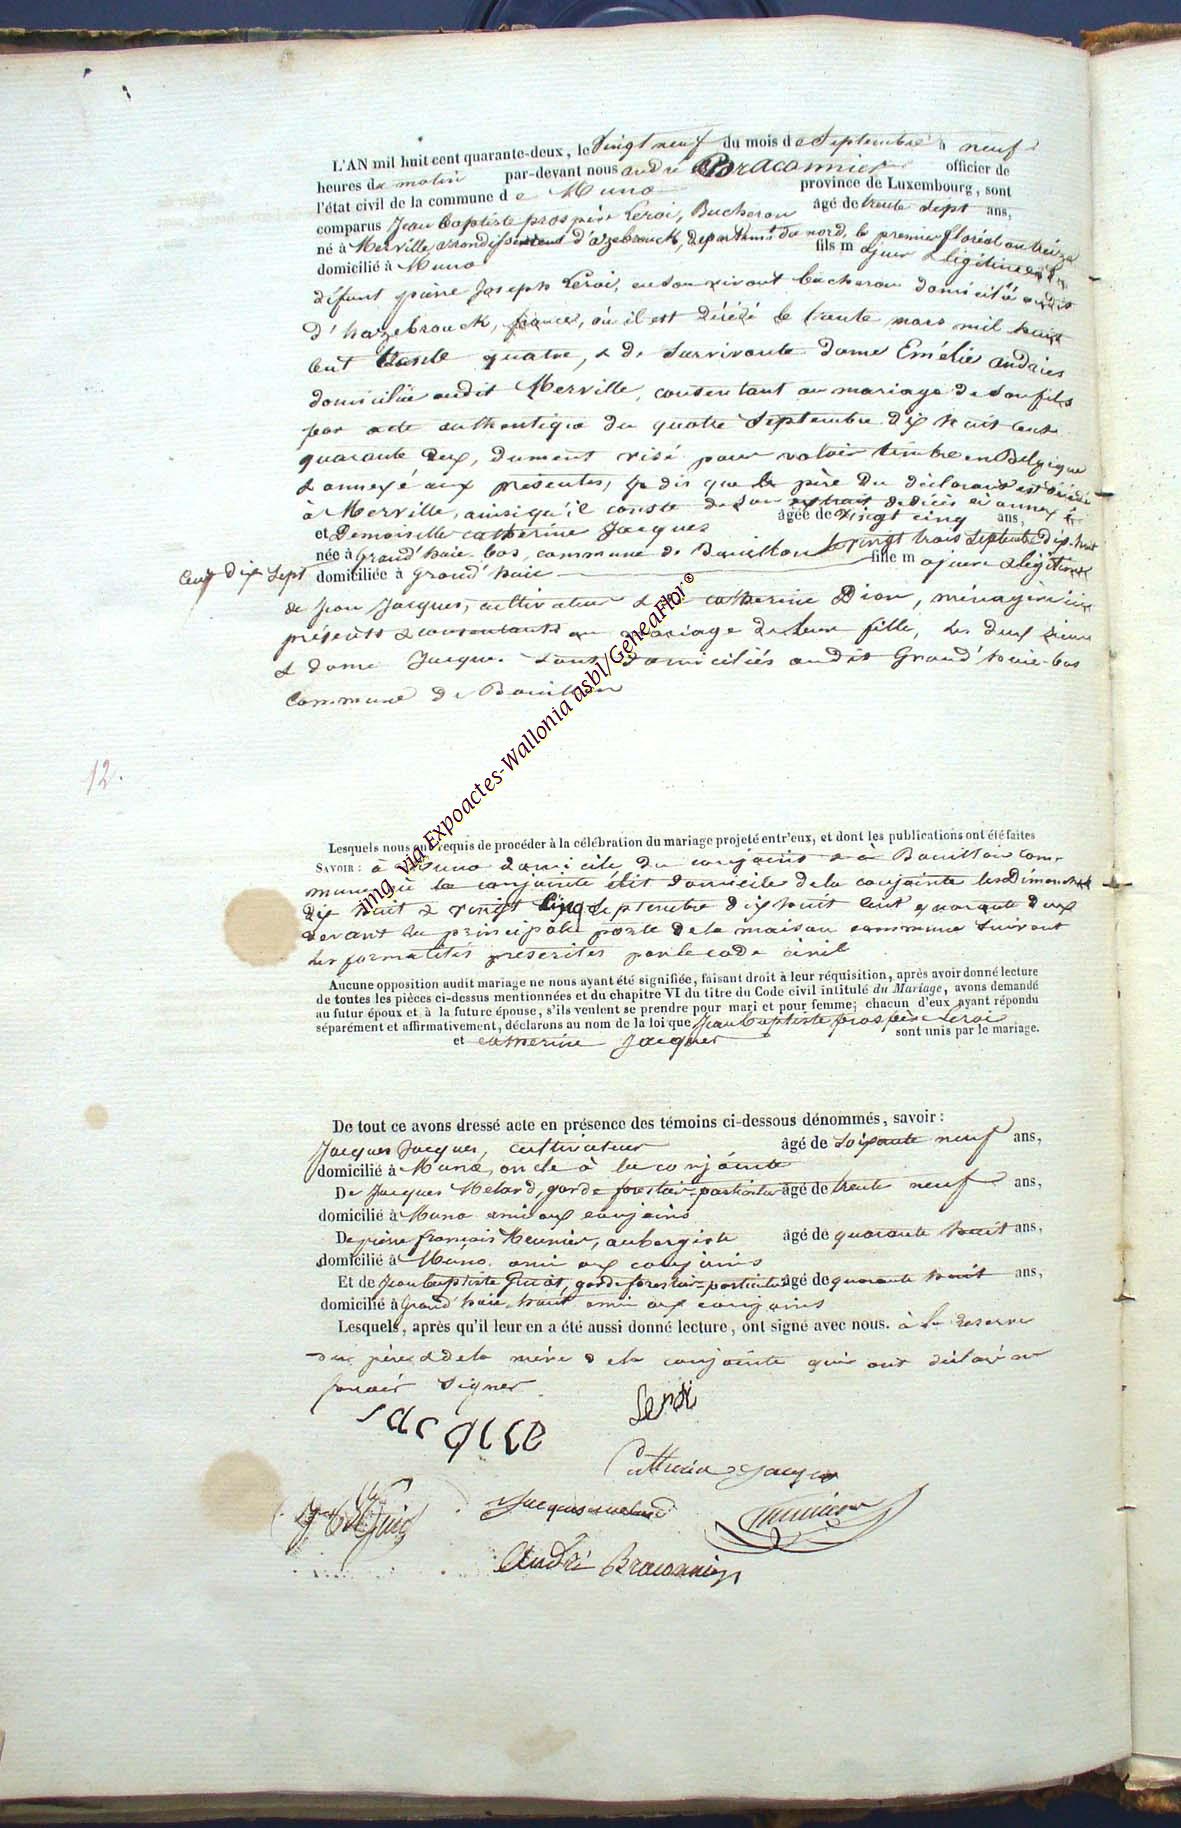 L'AN mil huit cent quarante-deux, le Vingt neuf du mois de Septembre à neuf
heures du matin par-devant nous andré Braconnier officier de
l'état civil de la commune de Muno province de Luxembourg, sont
comparus Jean baptiste prospère Leroi, Bucheron âgé de trente sept ans,
né à Merville, arondissement d'azebrouck, departemt du nord, le premier floréal an treize
domicilié à Muno fils majeur & légitime
défunt pierre Joseph Leroi, en son vivant bucheron domicilié
d'hazebrouck, france, où il est décédé le trente mars mil huit
cent trente quatre, & de survivante dame Emélie andries
domiciliée audit Merville, consentant au mariage de son fils
par acte authentique du quatre Septembre dix huit cent
quarante deux, dument visé pour valoir timbre en Belgique
& annexé aux présentes, que le père du déclarant est décédé
à Merville, ainsi qu'il conste de son extrait de décès ci annexé
et Demoiselle catherine Jacques âgée de Vingt cinq ans,
née à Grand' haie-bas, commune de Bouillon le vingt trois septembre dix-huit
cent dix sept domiciliée à Grand' haie fille majeure & légitime
de Jean Jacques, cultivateur & de catherine Dion, ménagère ici
présents & consentants au mariage de leur fille, les deux sieur
& dame Jacques sont domiciliés audit Grand' haie-bas
commune de Bouillon
12.
Lesquels nous ont requis de procéder à la célébration du mariage projeté entr'eux, et dont les publications ont été faites
SAVOIR : à Muno domicile du conjoint & à Bouillon com-
mune où la conjointe élit domicile de la conjointe les Dimanches
dix huit & vingt cinq Septembre dix huit cent quarante deux
devant la principale porte de la maison commune suivant
les formalités prescrites par le code civil
Aucune opposition audit mariage ne nous ayant été signifiée, faisant droit à leur réquisition, après avoir donné lecture
de toutes les pièces ci-dessus mentionnées et du chapitre VI du titre du Code civil intitulé du Mariage, avons demandé
au futur époux et à la future épouse, s'ils veulent se prendre pour mari et pour femme; chacun d'eux ayant répondu
séparément et affirmativement, déclarons au nom de la loi que Jean baptiste prospère Leroi
et catherine Jacques sont unis par le mariage.
De tout ce avons dressé acte en présence des témoins ci-dessous dénommés, savoir :
Jacques Jacques, cultivateur âgé de soixante neuf ans,
domicilié à Muno, oncle à la conjointe
De Jacques Melard, garde forestier-particulier âgé de trente neuf ans,
domicilié à Muno ami aux conjoins
De pierre françois Meunier, aubergiste âgé de quarante huit ans,
domicilié à Muno. ami aux conjoins
Et de Jean baptiste, garde forestier-particulier âgé de quarante huit ans,
domicilié à Grand' haie-haut ami aux conjoins
Lesquels, après qu'il leur en a été aussi donné lecture, ont signé avec nous. à la reserve
du père & de la mère de la conjointe qui ont déclaré ne
savoir signer
Jacque
Leroi
Catherine Jacques
Jacques melard
meunier
André Braconnier
img via Expoactes-Wallonia asbl/GeneaFlor®